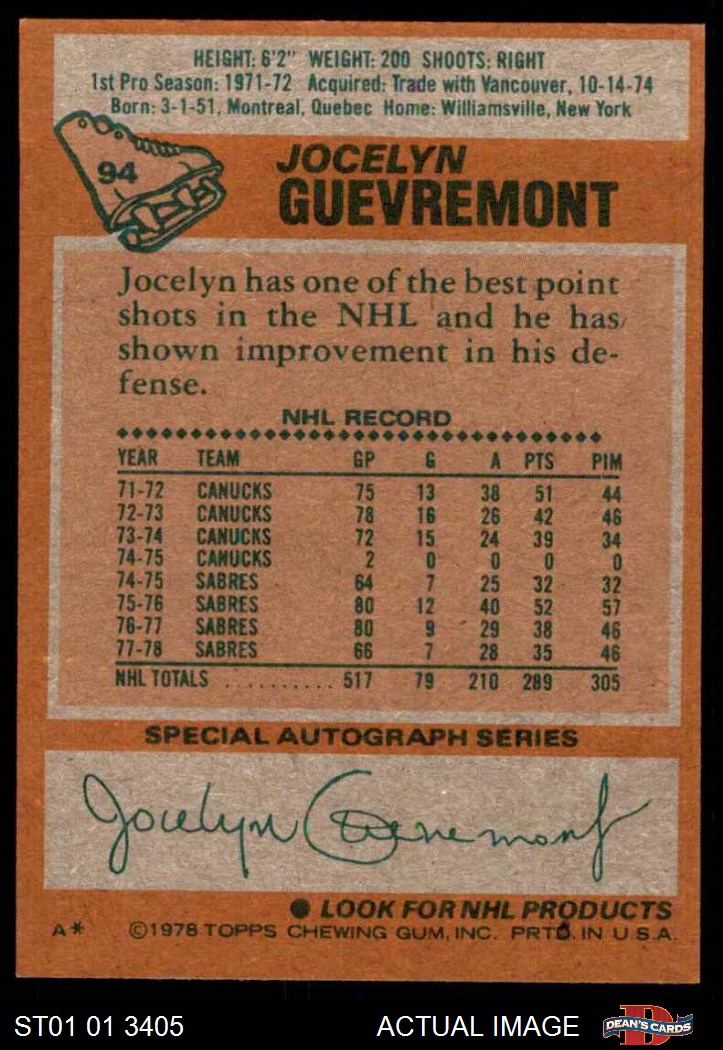 HEIGHT: 6'2" WEIGHT: 200 SHOOTS: RIGHT
1st Pro Season: 1971-72 Acquired: Trade with Vancouver, 10-14-74
Born: 3-1-51, Montreal, Quebec Home: Williamsville, New York
94
JOCELYN
GUEVREMONT
Jocelyn has one of the best point
shots in the NHL and he has
shown improvement in his de-
fense.
NHL RECORD
YEAR TEAM GP G A PTS PIM
71-72 CANUCKS 75 13 38 51 44
72-73 CANUCKS 78 16 26 42 46
73-74 CANUCKS 72 15 24 39 34
74-75 CANUCKS 2 0 0 0 0
74-75 SABRES 64 7 25 32 32
75-76 SABRES 80 12 40 52 57
76-77 SABRES 80 9 29 38 46
77-78 SABRES 66 7 28 35 46
NHL TOTALS .......... 517 79 210 289 305
SPECIAL AUTOGRAPH SERIES
Jocelyn Guevremont
LOOK FOR NHL PRODUCTS
A* ©1978 TOPPS CHEWING GUM, INC. PRTD. IN U.S.A.
ST01 01 3405 ACTUAL IMAGE DEAN'S CARDS